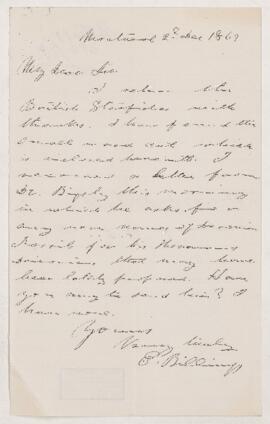 Montreal 2d Dec 1869
My Dear Sir
I return the
British
with
thanks. I have found the
small wood cut which
is enclosed herewith. I
received a letter from
Dr. Bigsby this morning
in which he asks for
any new names of Devonian
Fossils for his Thesaurus
Devonicus that may have
been lately proposed. Have
you any to send him? I
have none.
Yours
Very truly
E. Billings